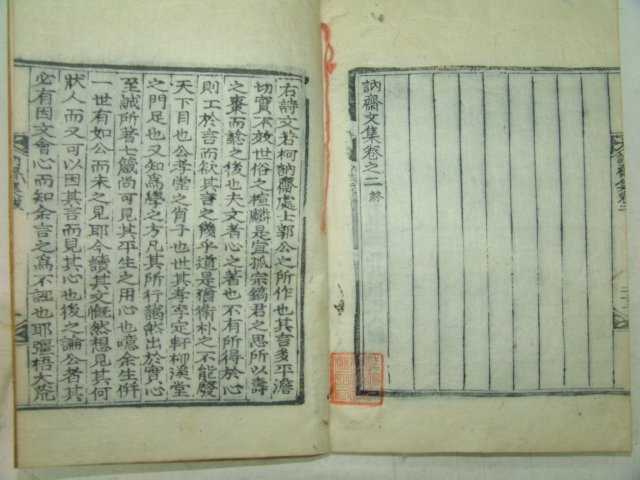 訥齋文集卷之二 終
右詩文若柯訥齋處士郭公之所作也其言多平澹
切實不放世俗之楦麟是宜孤宗鎬君之思所以壽
之棗而諗之後也夫文者心之著也不有所得於心
則工於言而欲其言之幾乎道是猶衛朴之不能發
天下目也公孝堂之肖子也世其孝亭定軒柳溪堂
之門足也又知爲學之方凡其所行藹然出於實心
至誠所著七箴尚可見其平生之用心也噫余生倂
一世有如公而未之見耶今讀其文慨然想見其何
狀人而又可以因其言而見其心也後之論公者其
必有因文會心而知余言之爲不誣也耶彊梧大荒